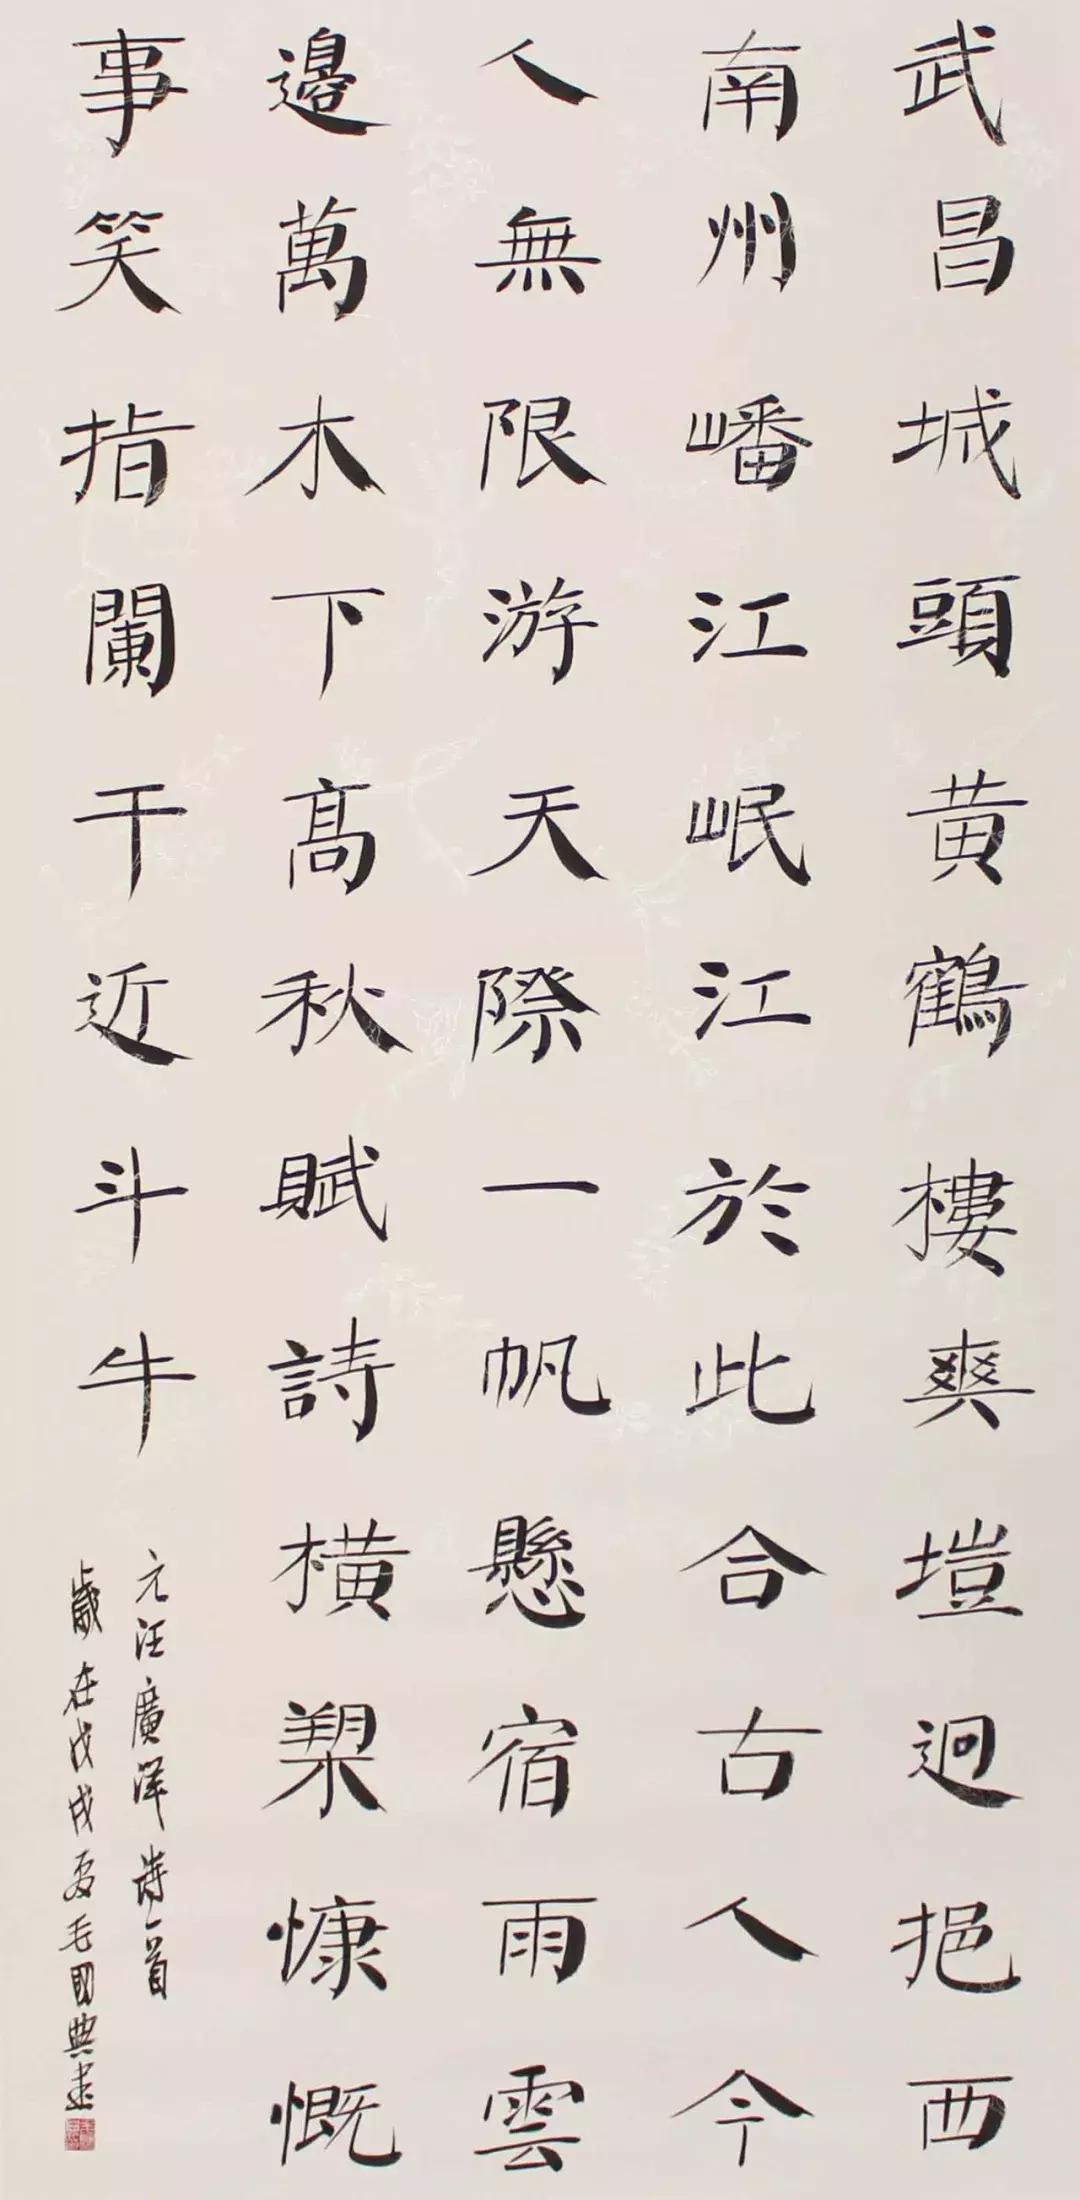 武昌城頭黄鶴樓爽塏迥挹西
南州嶓江岷江於此合古人今
人無限游天際一帆懸宿雨雲
邊萬木下髙秋賦詩横槊慷慨
事笑指闌干近斗牛
元汪廣洋詩一首
歲在戊戌夏毛國典書